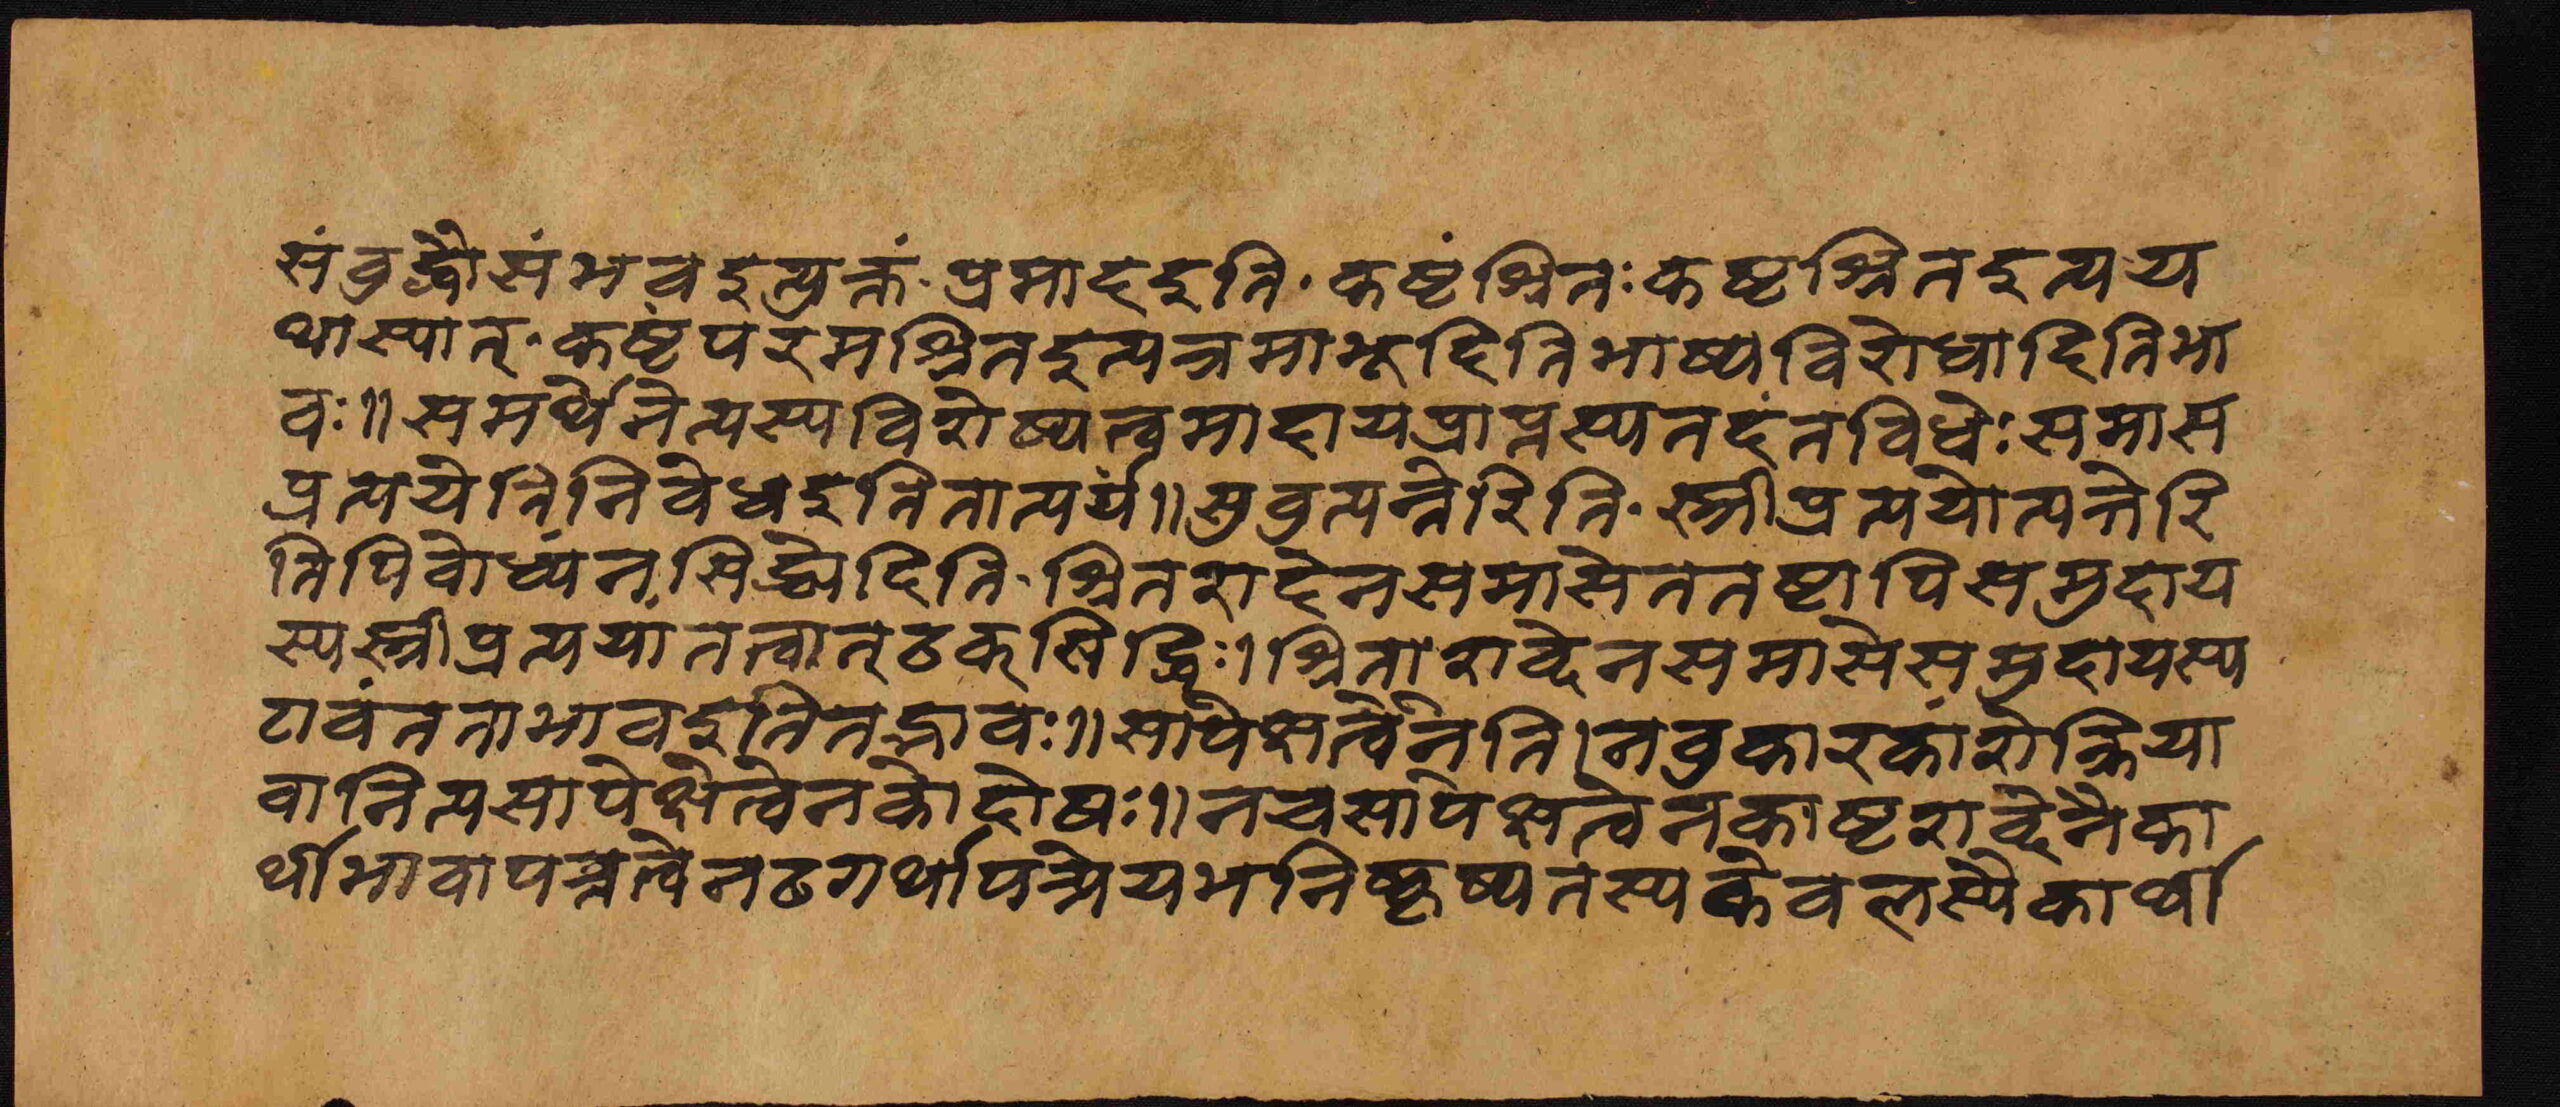 संवुद्धौसंभवइत्युक्तं॰प्रमाददइति॰कष्टंश्रितःकष्टश्रितइत्यय
थास्यात्॰कष्टंपरमश्रितइत्यत्रमाभूदितिभाष्यविरोधादितिभा
वः॥समर्थेनेत्यस्यविशेष्यत्वमादायप्राप्तस्यतदंतविधेःसमास
प्रत्ययेतिनिवेधइतितात्पर्यं॥सुवुत्पत्तेरिति॰स्त्रीप्रत्ययोत्पत्तेरि
तिपिवोध्यंन॰सिद्ध्येदिति॰श्रितशब्देनसमासेततष्टापिसमुदाय
स्यस्त्रीप्रत्ययांतत्वात्ठक्सिद्धिः।श्रिताशब्देनसमासेसमुदायस्य
टावंतताभावइतितद्भावः॥सापेक्षत्वेनेति।नवुकारकांशेक्रिया
वानित्यसापेक्षेत्वेनकोदोषः॥नचसापेक्षत्वेनकाष्टशब्देनैका
र्थीभावापन्नत्वेनठगर्थापत्येयभनिष्कृष्यतस्यकेवलस्यैकार्थी